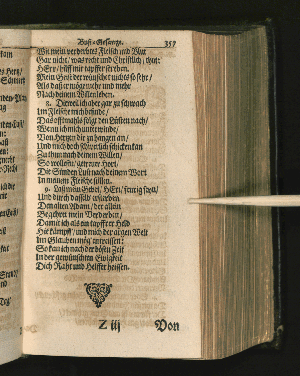 Buß-Gesänge. 357
Wie mein verderbtes Fleisch und Blut
Gar nicht, was recht und Christlich, thut:
HErr, hilff mir tapffer streben,
Mein Geist der wünschet nichts so sehr,
Als daß er möge mehr und mehr
Nach deinem Willen leben.
8. Dieweil ich aber gar zu schwach
Im Fleische mich befinde,
Das offtmahls folgt den Lüsten nach,
Wenn ich mich unterwinde,
Von Hertzen dir zu hangen an,
Und mich doch schwerlich schicken kan
Zu thun nach deinem Willen,
So wollest, getreuer Hort,
Die Sünden Lust nach deinem Wort
In meinem Fleische stillen.
9. Laß mein Gebet, HErr, feurig seyn,
Und durch dasselb' ersterben
Den alten Adam, der allein
Begehret mein Verderben,
Damit ich als ein tapffrer Held
Hie kämpff', und mich der argen Welt
Im Glauben mög' entreissen:
So kan ich nach der bösen Zeit
In der gewünschten Ewigkeit
Dich Raht und Helffer heissen.
Z iij Von